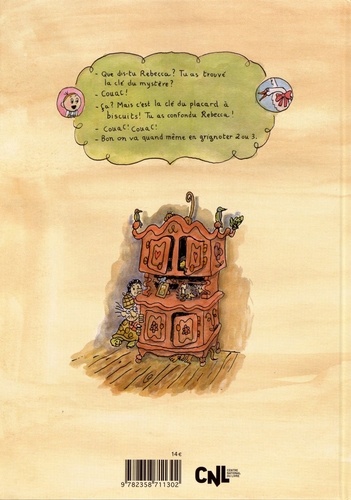 - Que dis-tu Rebecca? Tu as trouvé
la clé du mystère?
- Couac!
- Ça? Mais c'est la clé du placard à
biscuits! Tu as confondu Rebecca!
- Couac! Couac!
- Bon on va quand même en grignoter 2 ou 3.
14€
9 782358 711302
CNL
CENTRE
NATIONAL
DU LIVRE